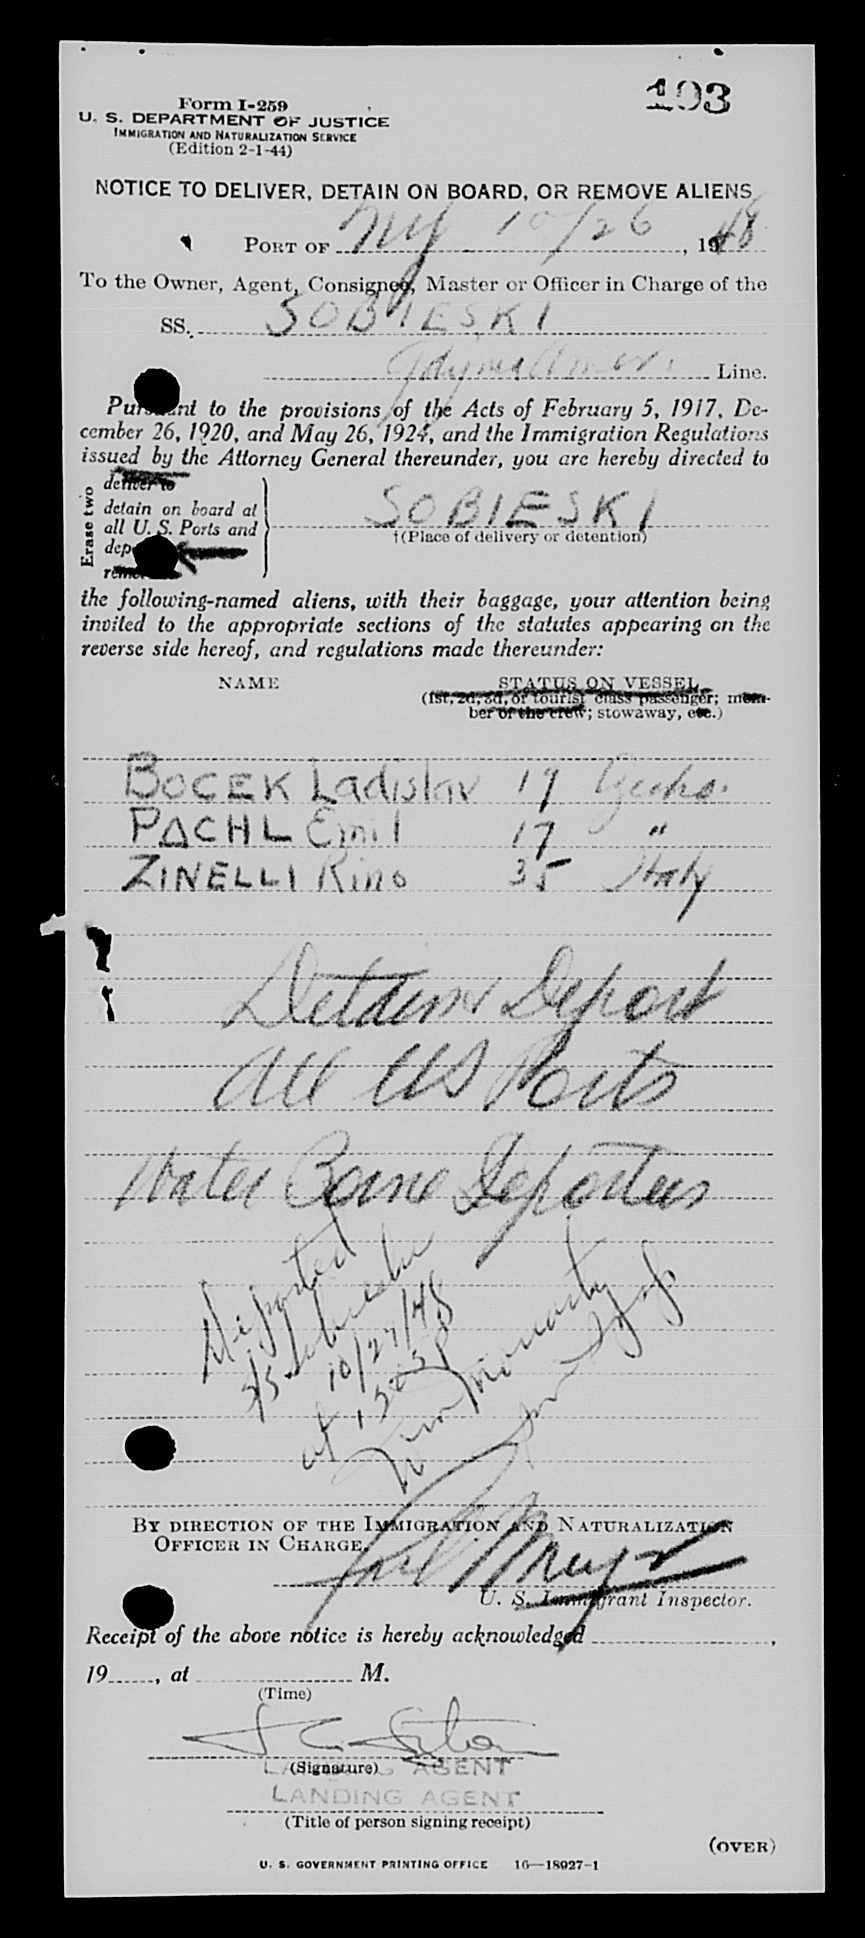 193
Form I-259
U. S. DEPARTMENT OF JUSTICE
IMMIGRATION AND NATURALIZATION SERVICE
(Edition 2-1-44)
NOTICE TO DELIVER, DETAIN ON BOARD, OR REMOVE ALIENS
PORT OF NY 10/26, 1948
To the Owner, Agent, Consignee, Master or Officer in Charge of the
SS. SOBIESKI
Gdynia Amer. Line.
Pursuant to the provisions of the Acts of February 5, 1917, De-
cember 26, 1920, and May 26, 1924, and the Immigration Regulations
issued by the Attorney General thereunder, you are hereby directed to
Erase two
deliver to
detain on board at
all U. S. Ports and
SOBIESKI
†(Place of delivery or detention)
the following-named aliens, with their baggage, your attention being
invited to the appropriate sections of the statutes appearing on the
reverse side hereof, and regulations made thereunder:
NAME STATUS ON VESSEL
(1st, 2d, 3d, or tourist class passenger; mem-
ber of the crew; stowaway, etc.)
BOCEK Ladislav 19 Czecho.
PACHL Emil 17 "
ZINELLI Rino 35 Italy
Detain & Deport
All US Ports
Water Borne Deportees
Deported
SS Sobieski
10/27/48
at
BY DIRECTION OF THE IMMIGRATION AND NATURALIZATION
OFFICER IN CHARGE.
U. S. Immigrant Inspector.
Receipt of the above notice is hereby acknowledged ,
19 , at M.
(Time)
(Signature)
LANDING AGENT
LANDING AGENT
(Title of person signing receipt)
(OVER)
U. S. GOVERNMENT PRINTING OFFICE 16—18927-1